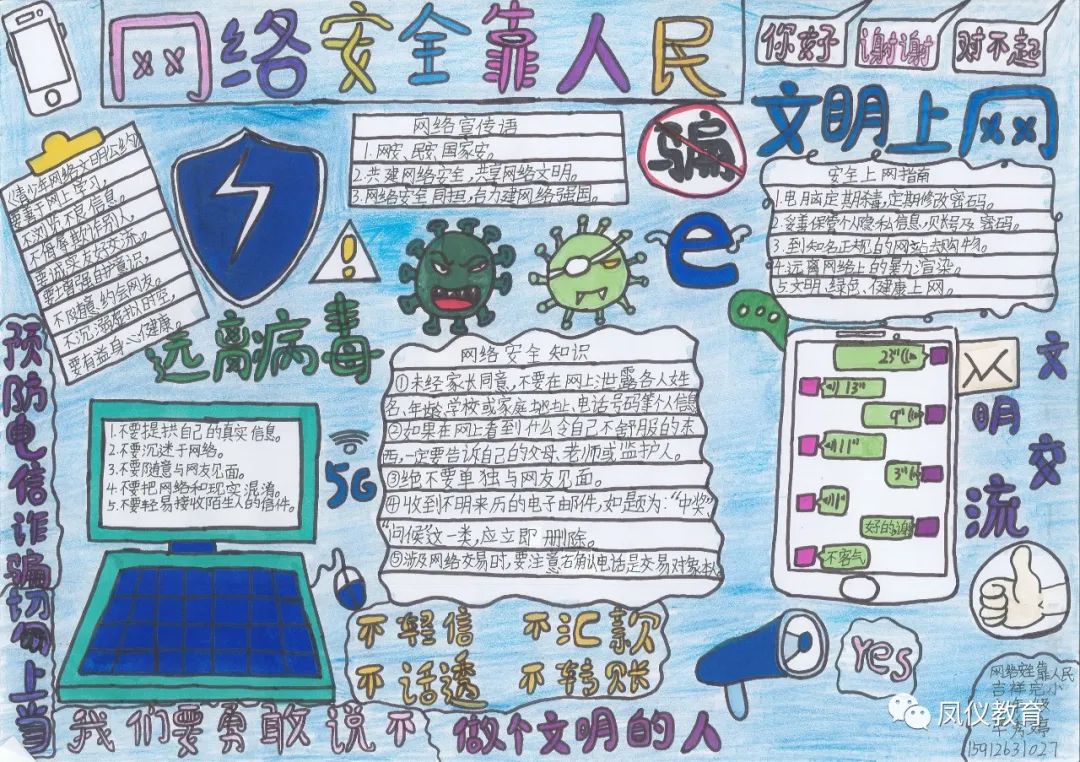 网络安全靠人民
你好
谢谢
对不起
文明上网
《青少年网络文明公约》
要善于网上学习,
不浏览不良信息。
不侮辱欺诈别人,
要诚实友好交流。
要增强自护意识,
不随意约会网友。
不沉溺虚拟时空,
要有益身心健康。
网络宣传语
1.网安,民安,国家安。
2.共建网络安全,共享网络文明。
3.网络安全同担,合力建网络强国。
骗
e
安全上网指南
1.电脑定期杀毒,定期修改密码。
2.妥善保管个隐私信息,账号及密码。
3.到知名正规的网站去购物。
4.远离网络上的暴力渲染。
5.文明、绿色、健康上网。
远离病毒
网络安全知识
①未经家长同意,不要在网上泄露各人姓
名、年龄、学校或家庭地址、电话号码等个人信息
②如果在网上看到什么令自己不舒服的东
西,一定要告诉自己的父母、老师或监护人。
③绝不要单独与网友见面。
④收到不明来历的电子邮件,如题为:“中奖”
“问候”这一类,应立即删除。
⑤涉及网络交易时,要注意右确认电话是交易对象本人
预防电信诈骗切勿上当
1.不要提供自己的真实信息。
2.不要沉迷于网络。
3.不要随意与网友见面。
4.不要把网络和现实混淆。
5.不要轻易接收陌生人的信件。
5G
23"
13"
9"
11"
3"
1"
好的谢
不客气
文明交流
不轻信 不汇款
不话透 不转账
Yes
我们要勇敢说不 做个文明的人
网络安全靠人民
15912631027
凤仪教育